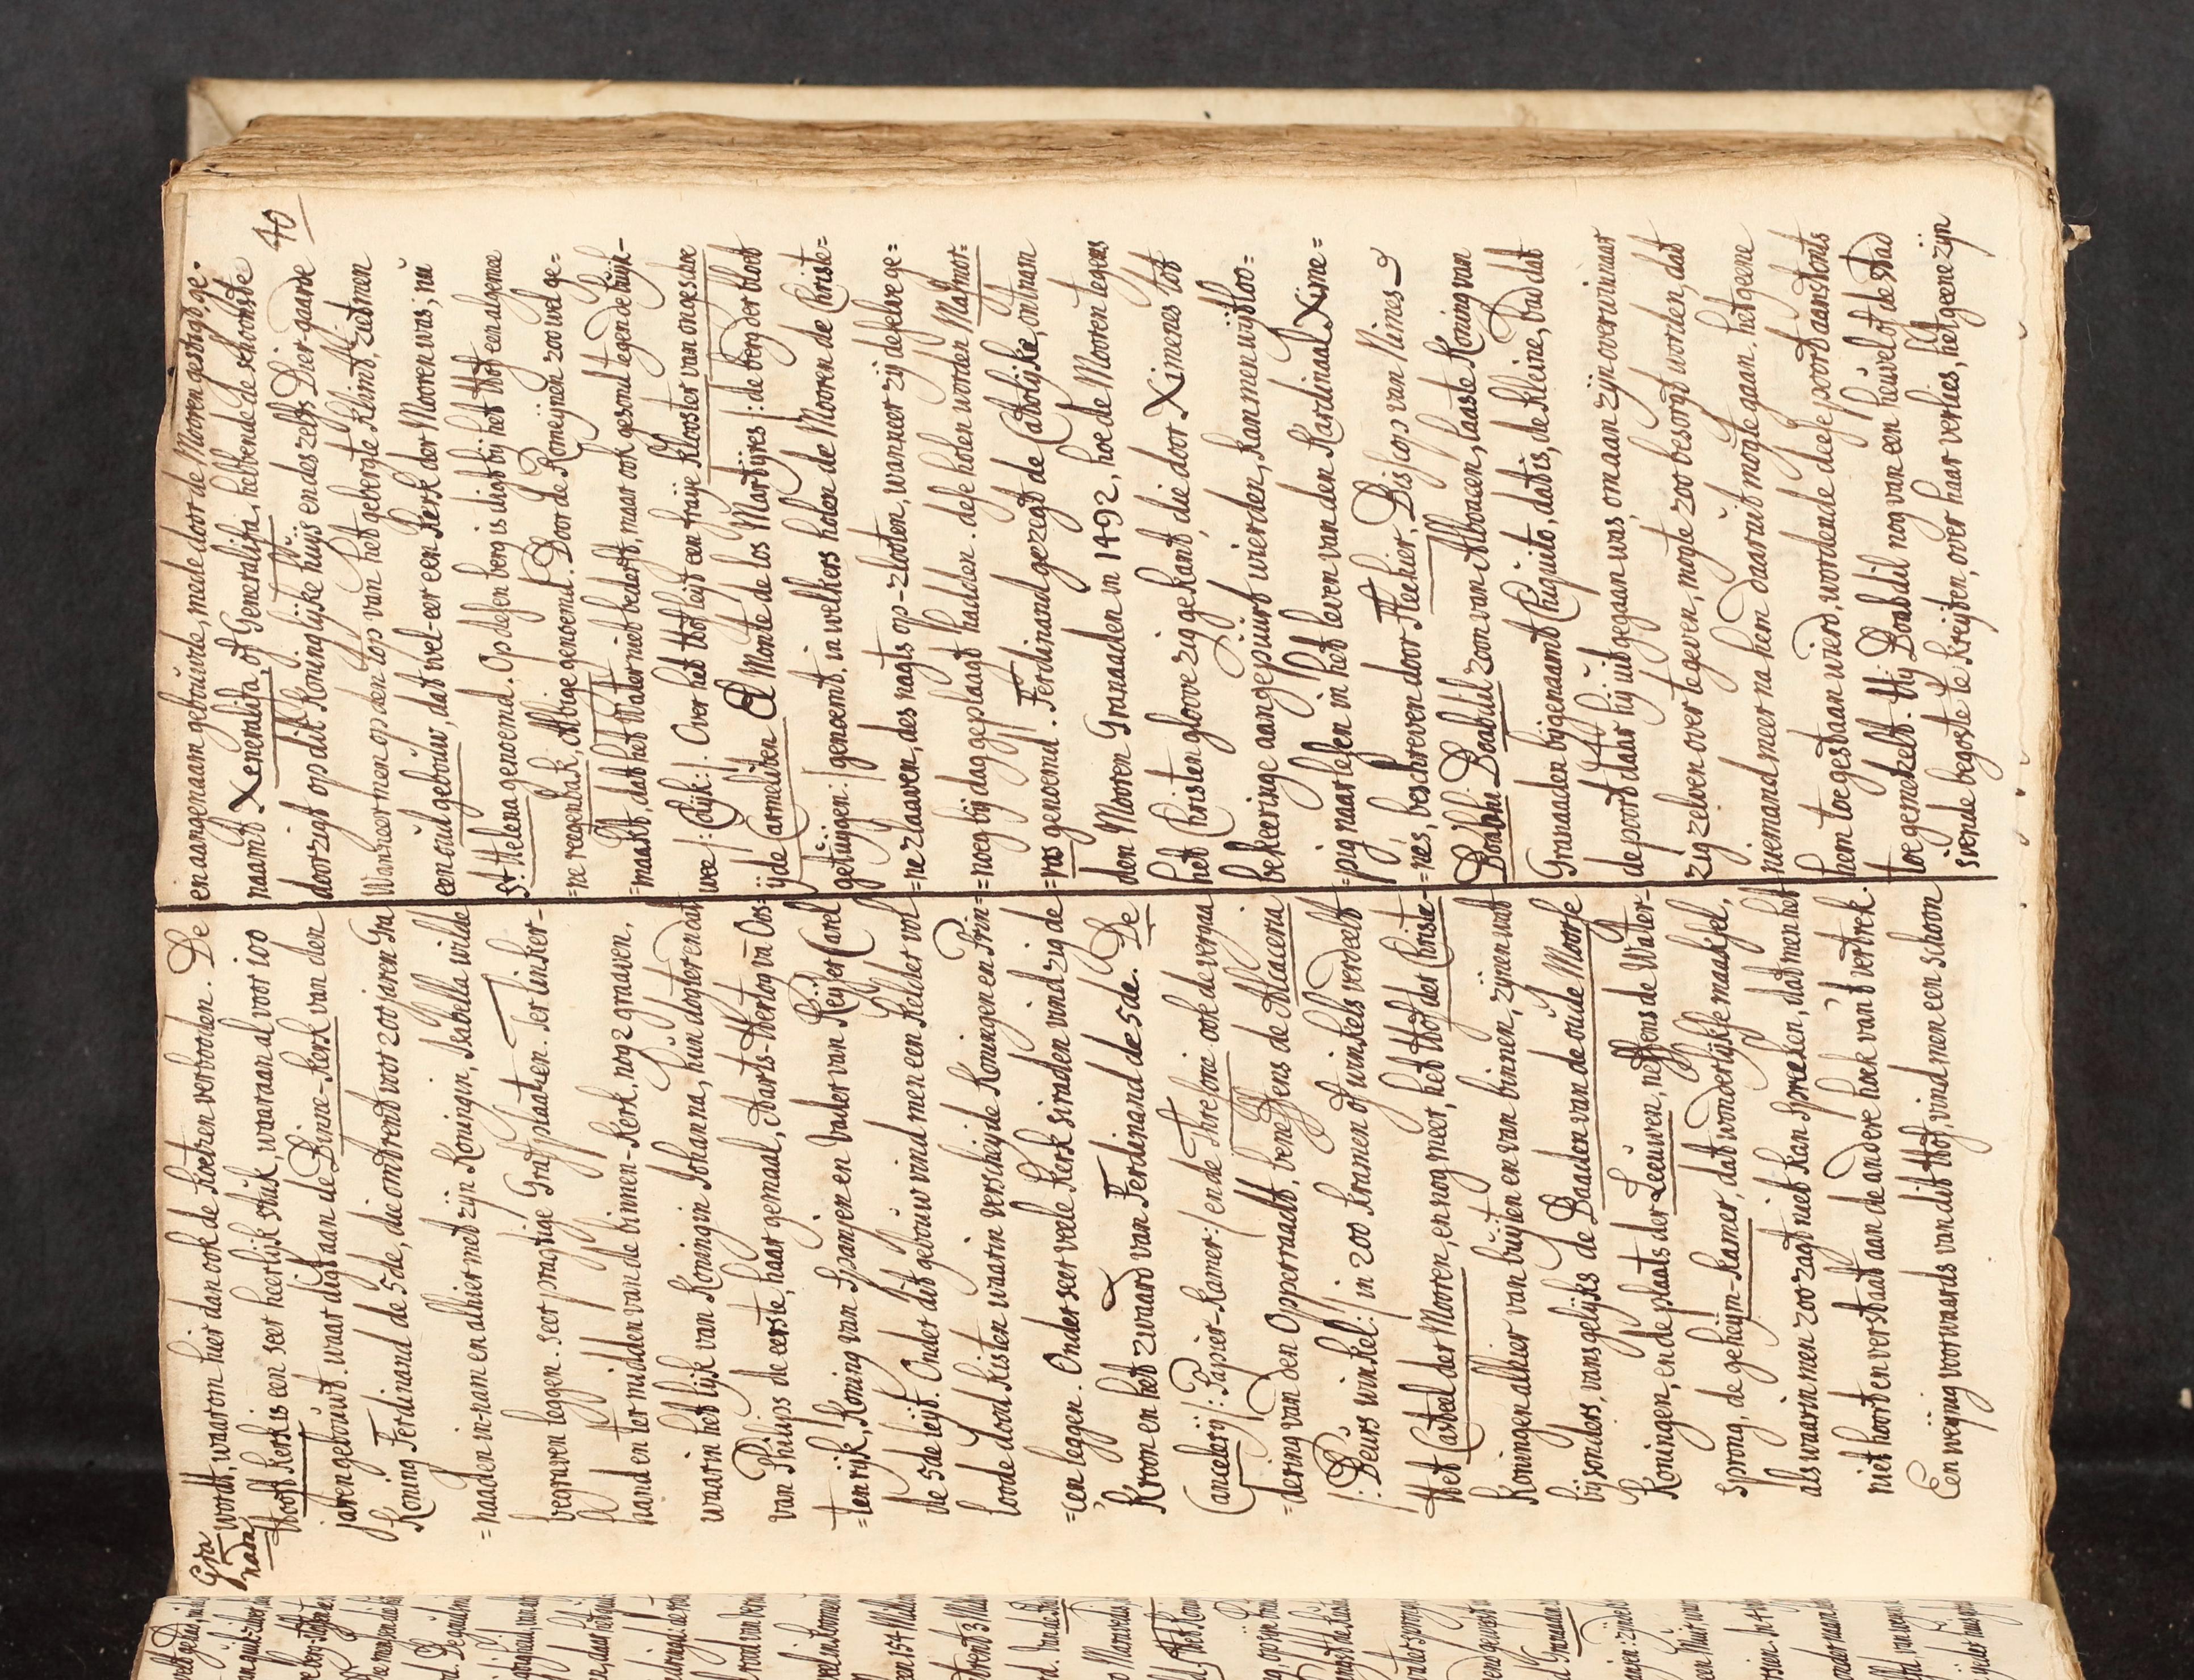 Gra
nada
wordt, waarom hier dan ook de koetzen verboden. De
Hoofd Kerk is een seer heerlijk stuk, waaraan al voor 100
jaren gebouwt. waar digt aan de Binne-Kerk van den
Koning Ferdinand de 5de, die omtrent voor 200 jaren Gra
=naaden in-nam en alhier met zijn Koningin, Isabella wilde
begraven leggen. seer pragtige Grafplaatzen. Ter linker-
hand en ter midden van de binnen-Kerk, nog 2 graaven,
waarin het lijk van Koningin Johanna, hun dogter en dat
van Philips de eerste, haar gemaal, Aarts-Hertog van Oos
=tenrijk, Koning van Spanjen en Vader van Keyser Carel
de 5de leijt. Onder dit gebouw vind men een Kelder vol
loode dood kisten waarin verscheijde Koningen en Prin=
=cen leggen. Onder seer veele Kerk siraden vind zig de
Kroon en het zwaard van Ferdinand de 5de. De
Cancelerij /: Papier-Kamer :/ en de Thresorie ook de verga
=dering van den Opperraadt, beneffens de Alcaceria
/: Beurs winkel :/ in 200 Kramen of winkels verdeelt
Het Casteel der Mooren, en nog meer, het Hof der Christe-
Koningen alhier van buijten en van binnen, zijnen wat
bijsonders, vansgelijks de Baaden van de oude Moorse
Koningen, en de plaats der Leeuwen, neffens de Water-
sprong, de geheijm-Kamer, dat wonderlijkke maaksel,
als waarin men zoo zagt niet kan spreeken, dat men het
niet hoort en verstaat aan de andere hoek van 't vertrek.
Een weijnig voorwaards van dit Hof, vind men een schoon
40
en aangenaam gebouwte, mede door de Mooren gestigt, ge-
naamt Xeneralifa, of Generalifa, hebbende de schoonste
doorzigt op dit Koninglijke huijs en des zelfs Dier-gaarde
Wanneer men op den top van het gebergte klimt, ziet men
een oud gebouw, dat wel-eer een Kerk der Mooren was, nu
St. Helena genoemd. Op desen berg is digt bij het Hof een algemee
=ne regenbak, Albige genoemd. Door de Romeijnen zoo wel ge=
=maakt, dat het Water niet bederft, maar ook gesond tegen de buijk-
wee /: Colijk :/. Over het Hof leijt een fraije Klooster van ongeschoe
ijde Carmeliten El Monte de los Martijres /: de berg der bloot
getuijgen :/ genoemt, in welkers holen de Mooren de Christe=
=ne zlaaven, des nagts op-slooten, wanneer zij deselve ge=
=noeg bij dag geplaagt hadden. dese holen worden Masmor=
=ras genoemd. Ferdinand gezegt de Catolijke, ontnam
den Mooren Granaaden in 1492, hoe de Mooren tegens
het Christen gloove zig gekant, die door Ximenes tot
bekeeringe aangepuurt wierden, kan men wijtloo=
=pig naarlesen in het leven van den Kardinaal Xime=
=nes, beschreven door Flechier, Bisschop van Nimes
Boabhi Boabulil zoon van Alboacen, laaste Koning van
Granaaden bijgenaamt Chiquito, dat is, de Kleine, bad dat
de poort daar hij uitgegaan was, om aan zijn overwinnaar
zig zelven over te geven, mogte zoo besorgt worden, dat
niemand meer na hem daaruit mogte gaan. het geene
hem toegestaan wierd, wordende deese poort aanstonts
toegemetzelt. Hij Boabdil nog van een heuvel of de stad
siende begoste te kreijten, over haar verlies, het geene zijn